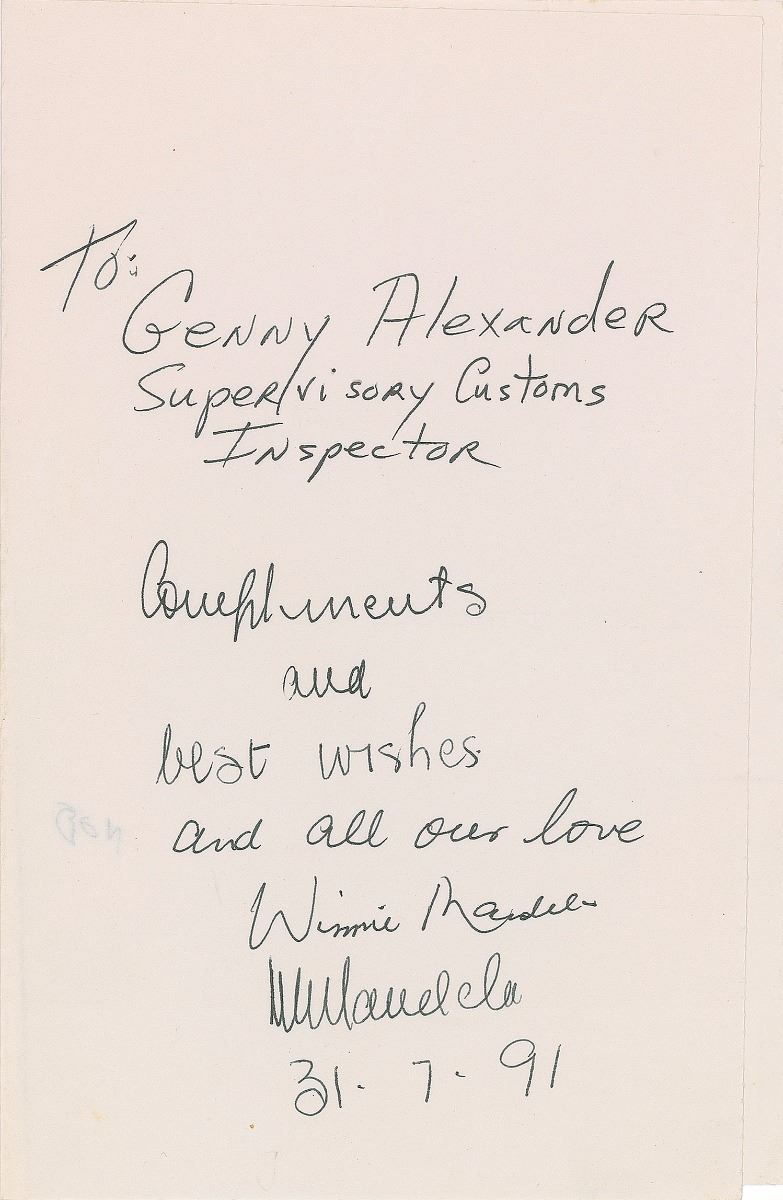 To:
Genny Alexander
Supervisory Customs
Inspector
Compliments
and
best wishes
and all our love
Winnie Mandela
NMandela
31. 7. 91